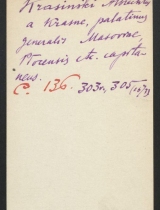 Krasinski
a Krasne, palatinus
generalis Masoviae,
Plocensis etc. capita-
neus.
C. 136. 303v, 305